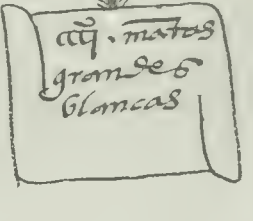 cccc . mātas
grandes
blancas